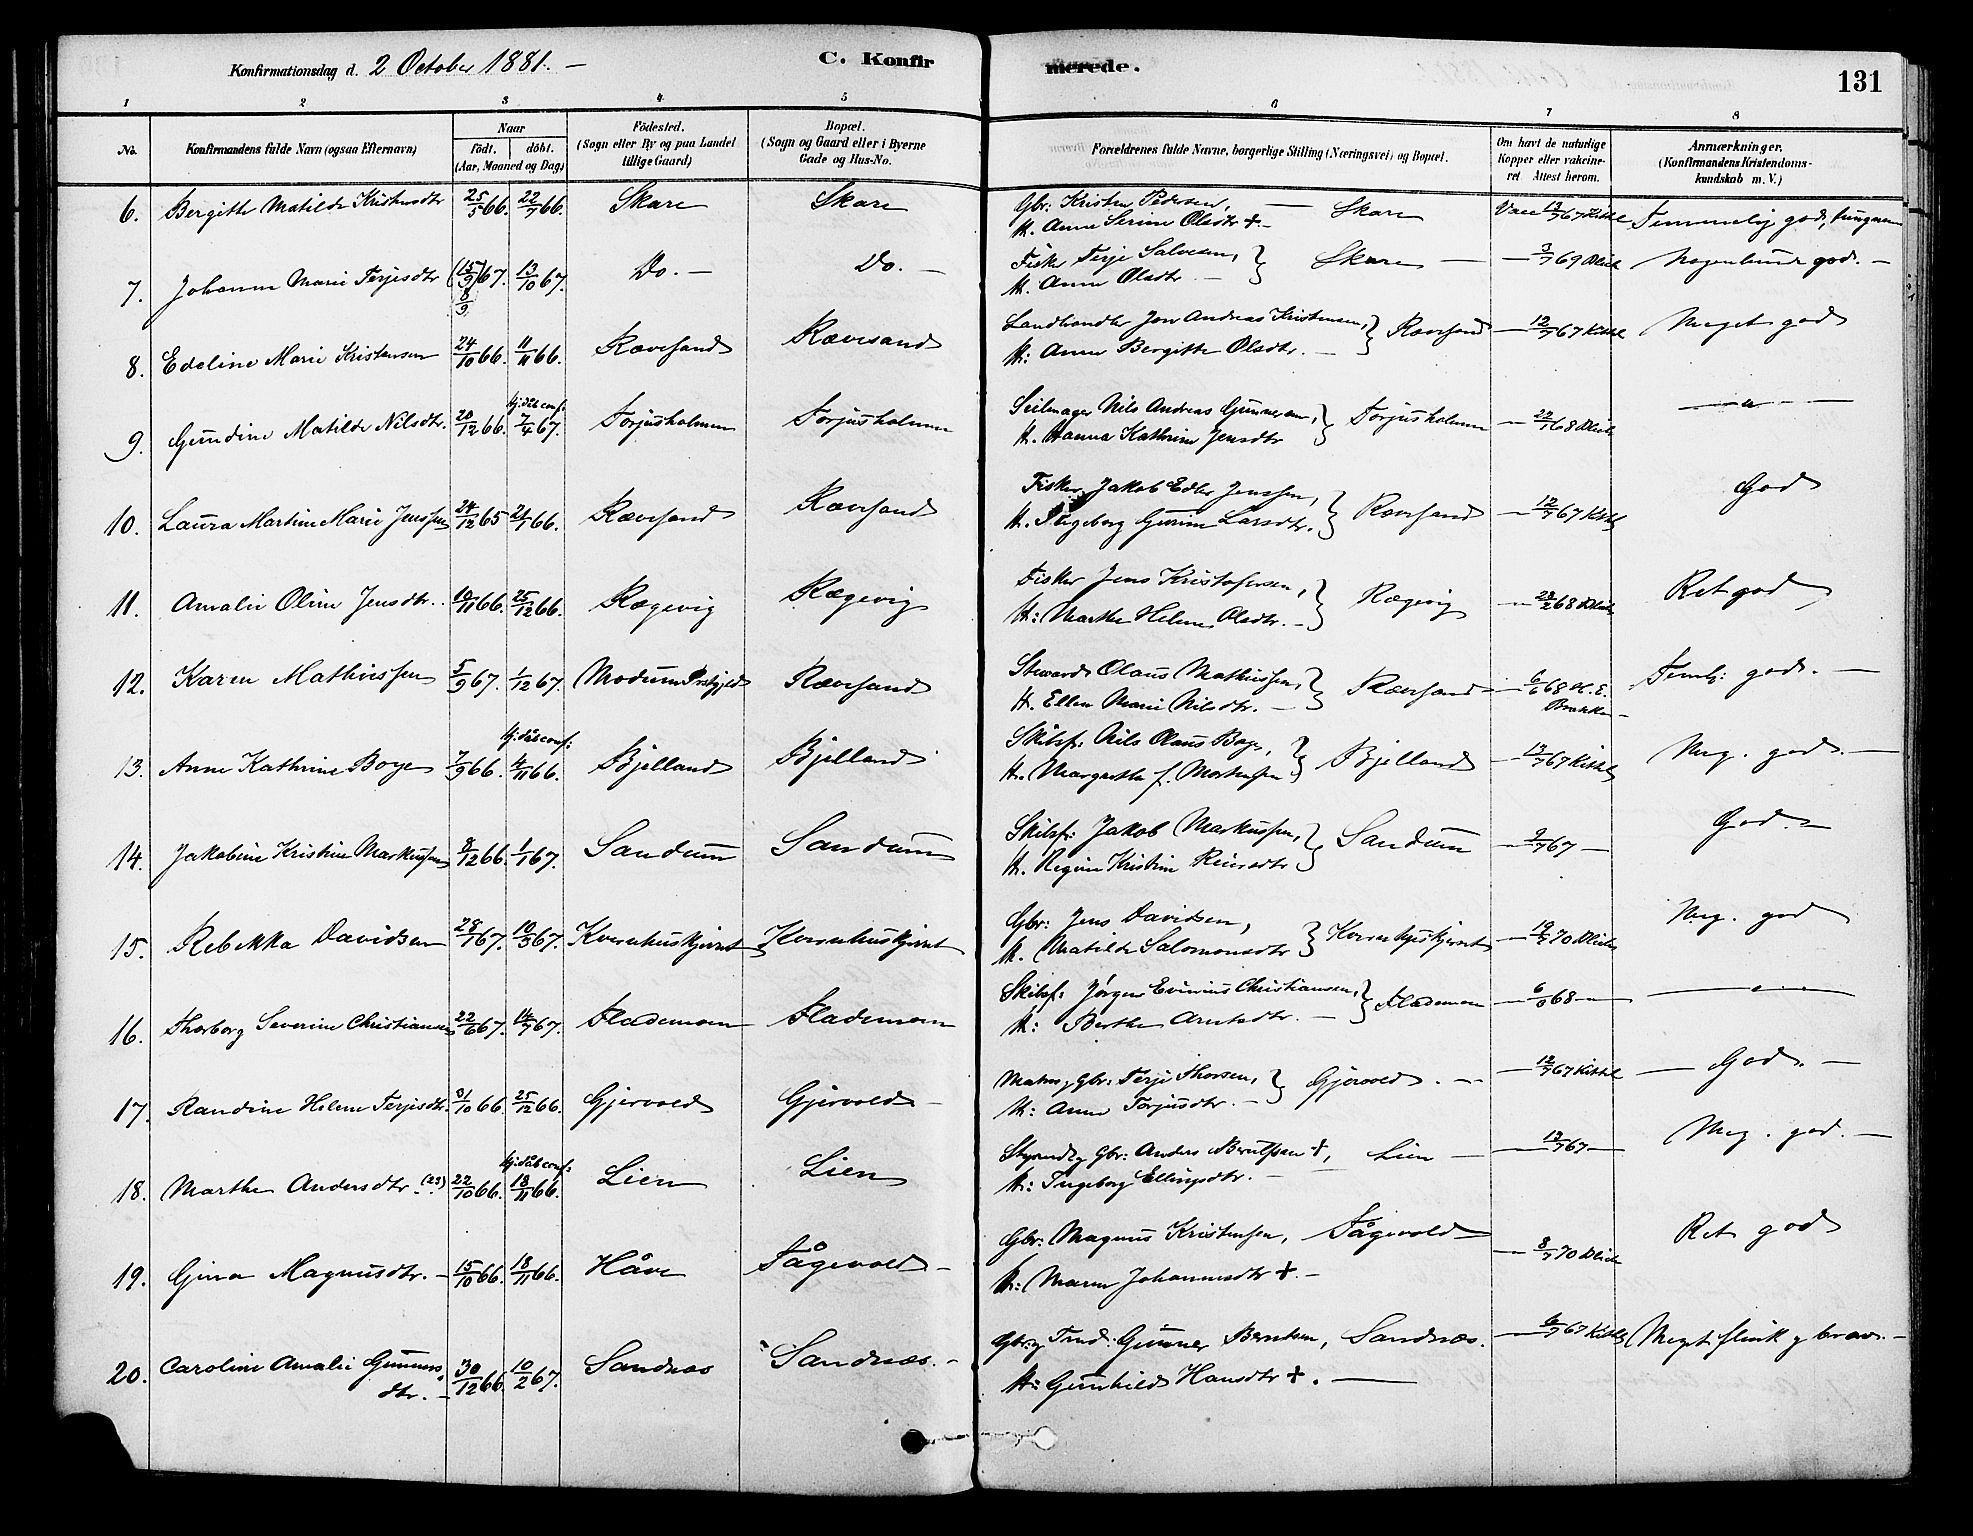 Konfirmationsdag d. 2 October 1881. —
C. Konfir
merede.
131
1 2 3 4 5 6 7 8
No.
Konfirmandens fulde Navn (ogsaa Efternavn)
Naar
Födt. döbt.
(Aar, Maaned og Dag)
Födested.
(Sogn eller By og paa Landet
tillige Gaard)
Bopæl.
(Sogn og Gaard eller i Byerne
Gade og Hus-No.
Forældrenes fulde Navne, borgerlige Stilling (Næringsvei) og Bopæl.
Om havt de naturlige
Kopper eller vakcine-
ret. Attest herom.
Anmærkninger.
(Konfirmandens Kristendoms-
kundskab m. V.)
6. Bergitte Matilde Kristensdtr 25/5 66. 22/7 66. Skare Skare Gbr: Kristen Pedersen, — Skare Vacc 12/7 67 Kittel Temmelig god,
H. Anne Serine Olsdtr +.
7. Johanne Marie Terjesdtr (15/9) 67. 13/10 67. Do. — Do. — Fisker Terje Salvesen, } Skare — — 3/7 69 Nogenlunde god. —
8/9
H. Anne Olsdtr —
8. Edeline Marie Kristensen 24/10 66. 11/11 66. Rævesand Rævesand Landhandler Jon Andreas Kristensen, } Rævesand — 12/7 67 Kittel Meget god
H: Anne Bergitte Olsdtr. —
9. Gundine Matilde Nilsdtr. 20/12 66. Hj: dåb conf: 7/4 67. Torjusholmen Torjusholmen Seilmager Nils Andreas Gunnersen, } Torjusholmen — 22/1 68 — " —
H. Hanna Kathrine Jensdtr
10. Laura Martine Marie Jenssen 24/12 65 21/1 66. Rævesand Rævesand Fisker Jakob Edler Jenssen, } Rævesand — 12/7 67 Kittel God
H. Ingeborg Gurine Larsdtr.
11. Amalie Oline Jensdtr. 10/11 66. 25/12 66. Rægevig Rægevig Fisker Jens Kristofersen, } Rægevig — 28/2 68 Ret god
H: Marthe Helene Olsdtr. —
12. Karen Mathiessen 5/9 67. 1/12 67. Modum Prstgjeld Rævesand Steward Olaus Mathiessen, } Rævesand — 6/6 68 Teml: god. —
H. Ellen Marie Nilsdtr. —
13. Anne Kathrine Boye 7/9 66. Hj: dåb conf: 4/11 66. Bjelland Bjelland Skibsf: Nils Olaus Boye, } Bjelland — 13/7 67 Kittel Meg. god. —
H. Margrethe f. Mortensen
14. Jakobine Kristine Markussen 8/12 66. 1/1 67. Sandum Sandum Skibsf: Jakob Markussen, } Sandum — 9/7 67 — God. —
H. Regine Kristine Reiersdtr
15. Rebekka Davidsen 28/1 67. 10/3 67. Kvernhuskjernet Kvernhuskjernet Gbr: Jens Davidsen, } Kvernhuskjernet — 70 Meg. god
H. Matilde Salomonsdtr
16. Thorborg Severine Christiansen 22/6 67. 14/7 67. Flademoen Flademoen Skibsf: Jörgen Christiansen, } Flademoen — 68 — — " —
H: Berthe Arntsdtr. —
17. Randine Helene Terjesdtr. 31/10 66. 25/12 66. Gjervold Gjervold — Matros, Gbr: Terje Thorsen, } Gjervold. — — 12/7 67 Kittel — God. —
H: Anne Torjusdtr. —
18. Marthe Andersdtr (23) 22/10 66. Hj: dåb conf: 18/11 66. Lien Lien Styrmd. og Gbr: Anders Berntsen +, Lien — — 12/7 67 — Meg. god. —
H: Ingeborg Ellingsdtr. —
19. Gina Magnusdtr. — 15/10 66. 18/11 66. Håve Fågevold — Gbr: Magnus Kristensen, Fågevold — — 8/7 70 Ret god
H: Maren Johannesdtr +. —
20. Caroline Amalie Gunners- 30/12 66. 10/2 67. Sandnæs Sandnæs. — Gbr. og Tmd. Gunner Berntsen, Sandnæs. — 6/7 67 Kittel Meget flink og brav. —
dtr. — H: Gunhild Hansdtr +. —